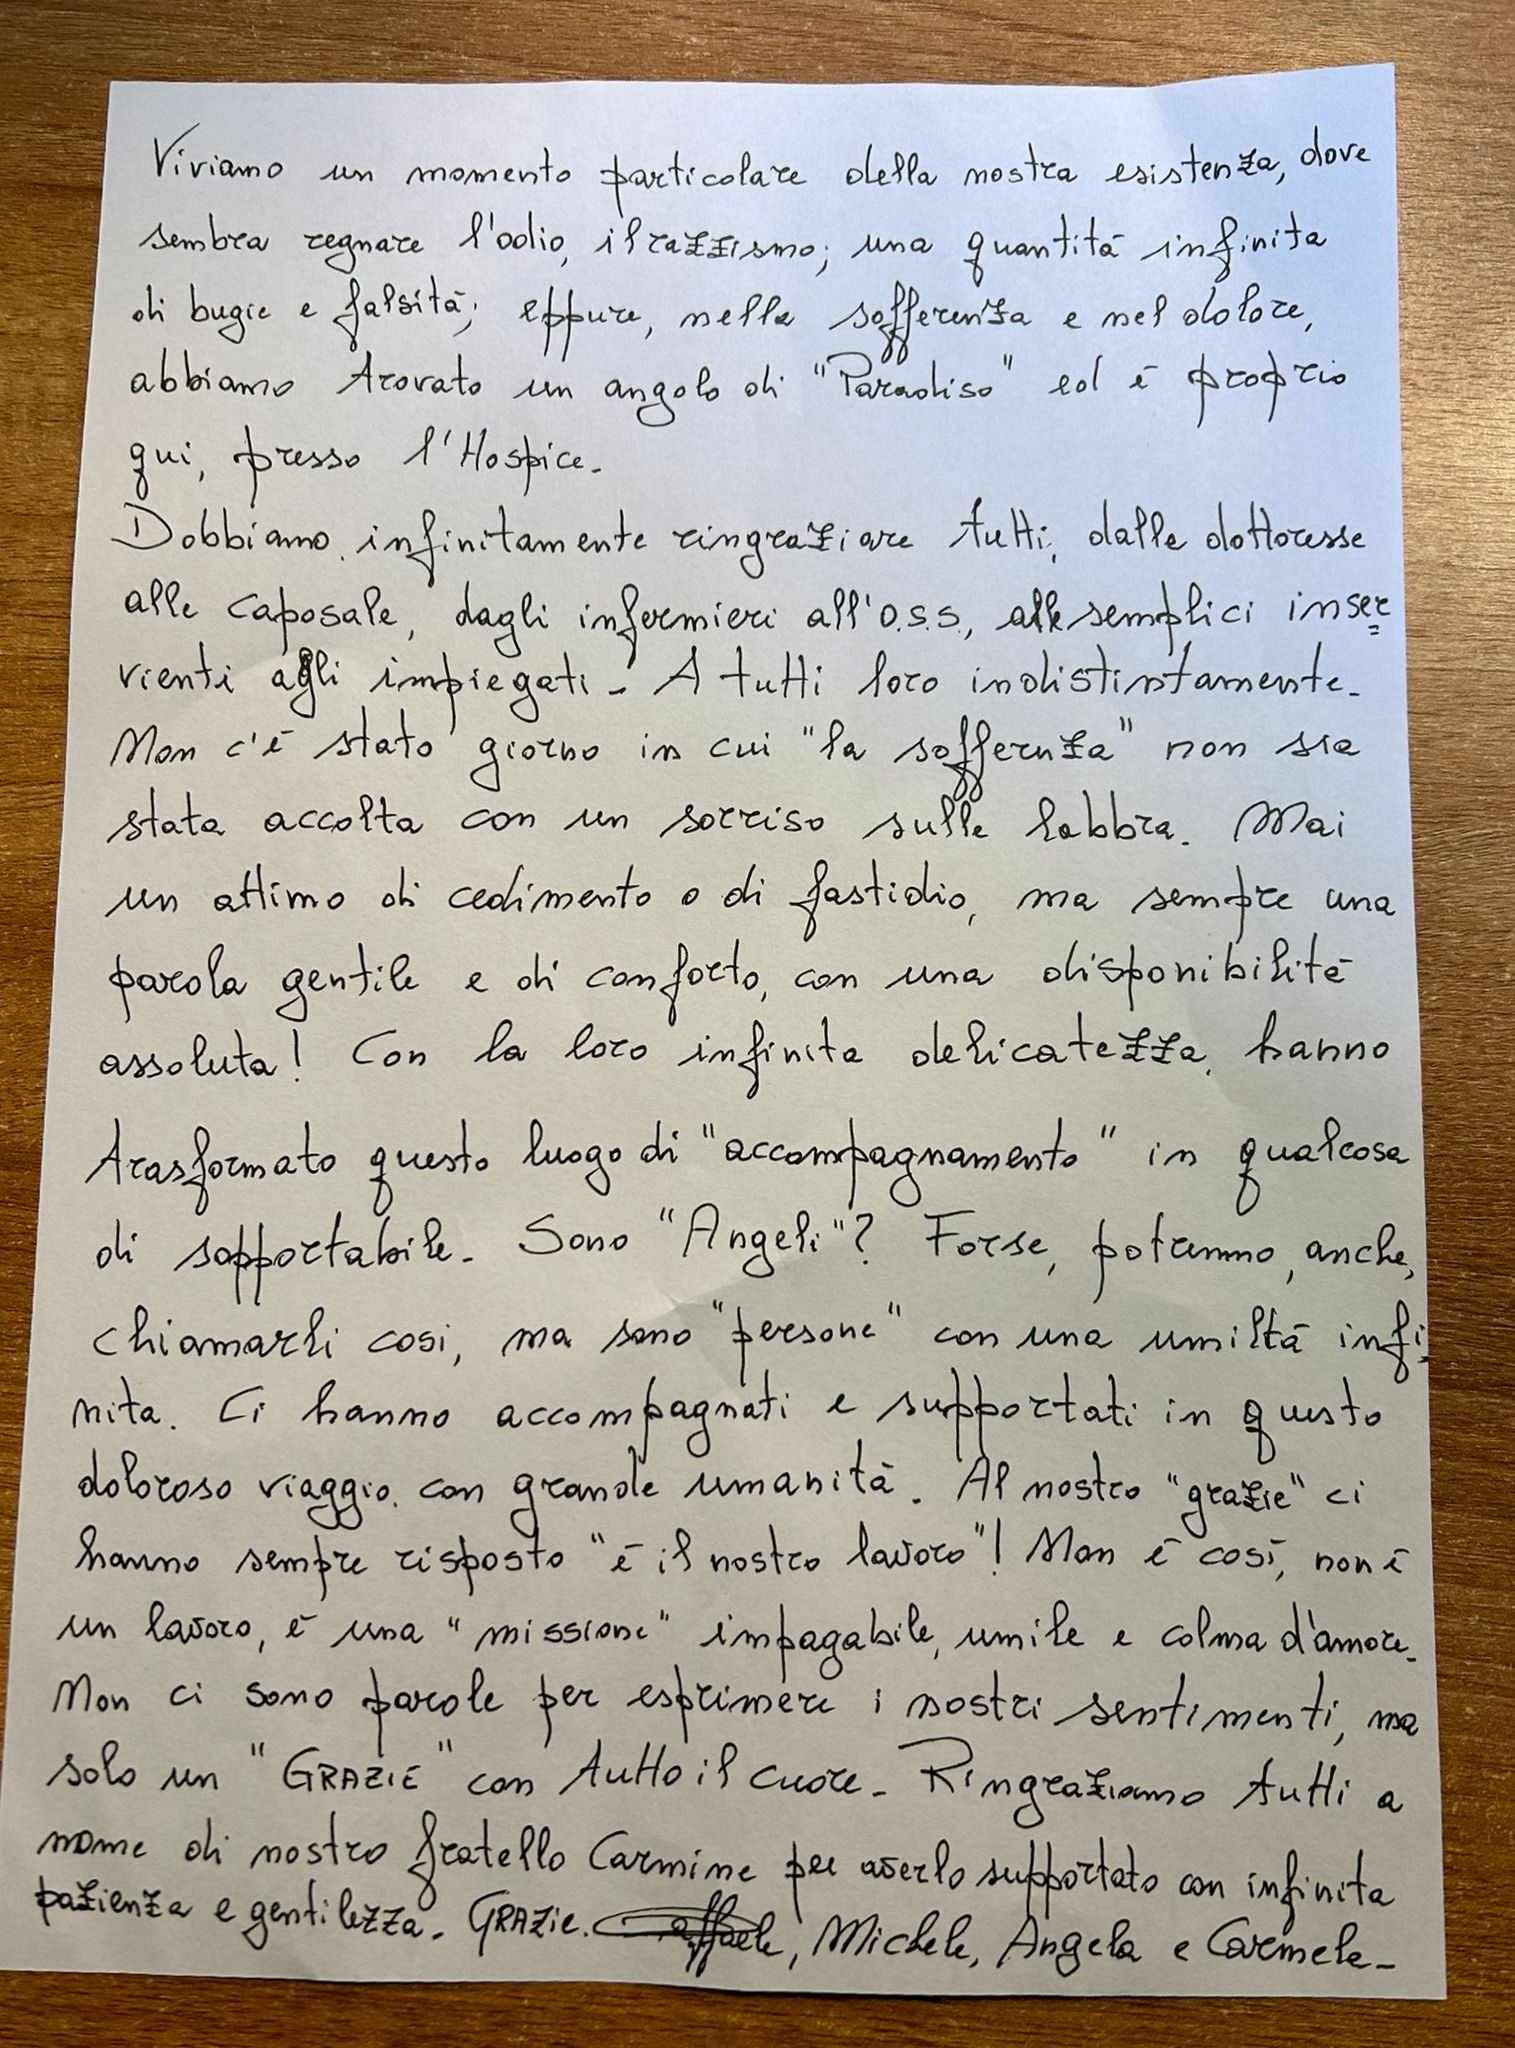 Viviamo un momento particolare della nostra esistenza, dove
sembra regnare l'odio, il razzismo; una quantità infinita
di bugie e falsità; eppure, nella sofferenza e nel dolore,
abbiamo trovato un angolo di "Paradiso" ed è proprio
qui, presso l'Hospice.
Dobbiamo infinitamente ringraziare tutti, dalle dottoresse
alle caposale, dagli infermieri all'O.S.S., alle semplici inser=
vienti agli impiegati. A tutti loro indistintamente.
Non c'è stato giorno in cui "la sofferenza" non sia
stata accolta con un sorriso sulle labbra. Mai
un attimo di cedimento o di fastidio, ma sempre una
parola gentile e di conforto, con una disponibilità
assoluta! Con la loro infinita delicatezza, hanno
trasformato questo luogo di "accompagnamento" in qualcosa
di sopportabile. Sono "Angeli"? Forse, potremmo, anche,
chiamarli così, ma sono "persone" con una umiltà infi=
nita. Ci hanno accompagnati e supportati in questo
doloroso viaggio con grande umanità. Al nostro "grazie" ci
hanno sempre risposto "è il nostro lavoro"! Non è così, non è
un lavoro, è una "missione" impagabile, umile e colma d'amore.
Non ci sono parole per esprimere i nostri sentimenti, ma
solo un "GRAZIE" con tutto il cuore. Ringraziamo tutti a
nome di nostro fratello Carmine per averlo supportato con infinita
pazienza e gentilezza. GRAZIE. Michele, Angela e Carmela.